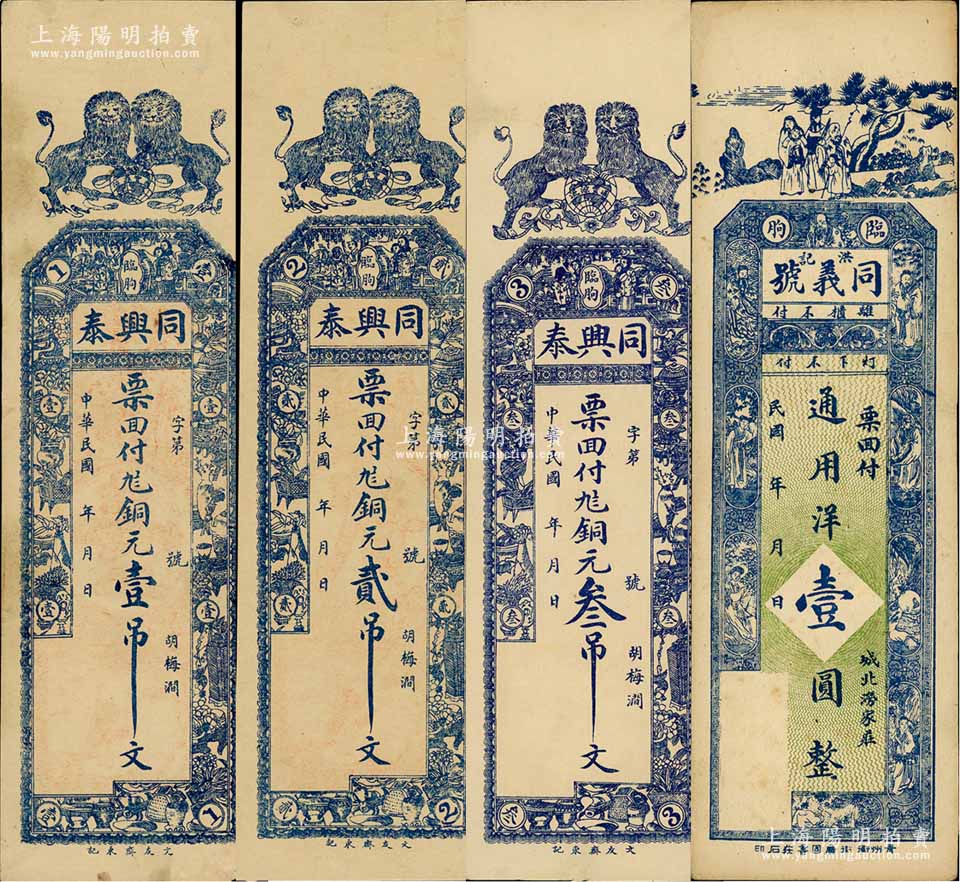 上海陽明拍賣
www.yangmingauction.com
1
臨朐
同興泰
票面付
銅元壹吊文
字第 號
中華民國 年 月 日
胡梅澗
壹
壹
壹
壹
1
文友齋東記
2
臨朐
同興泰
票面付
銅元貳吊文
字第 號
中華民國 年 月 日
胡梅澗
貳
貳
貳
貳
2
文友齋東記
3
叁
臨朐
同興泰
票面付
銅元叁吊文
字第 號
中華民國 年 月 日
胡梅澗
叁
叁
叁
叁
叁
3
文友齋東記
臨朐
洪記
同義號
離櫃不付
灯下不付
票面付
通用洋壹圓整
民國 年 月 日
城北澇家莊
石印
上海陽明拍賣
www.yangmingauction.com
上海陽明拍賣
www.yangmingauction.com